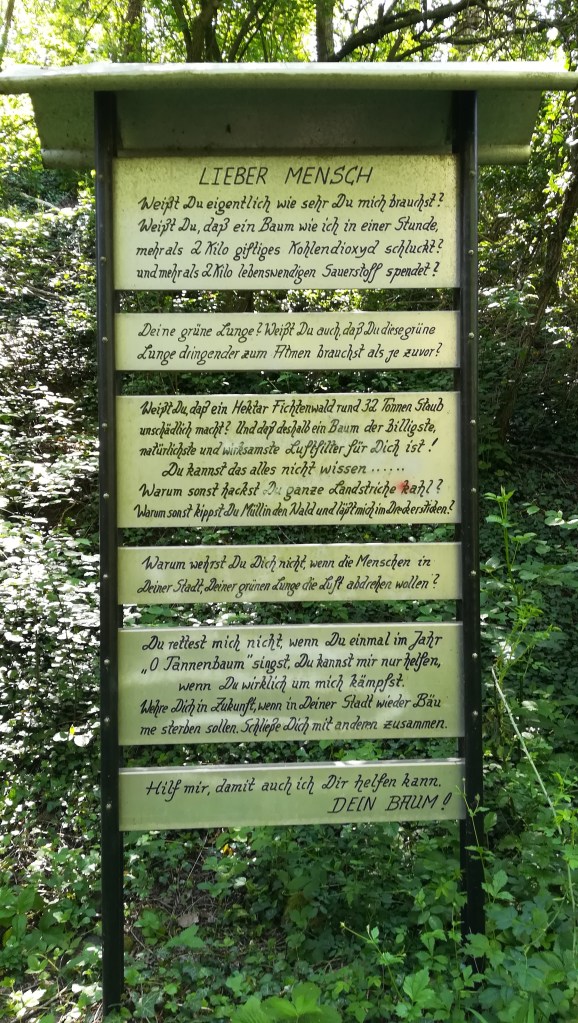 LIEBER MENSCH
Weißt Du eigentlich wie sehr Du mich brauchst?
Weißt Du, daß ein Baum wie ich in einer Stunde,
mehr als 2 Kilo giftiges Kohlendioxyd schluckt?
und mehr als 2 Kilo lebenswendigen Sauerstoff spendet?
Deine grüne Lunge? Weißt Du auch, daß Du diese grüne
Lunge dringender zum Atmen brauchst als je zuvor?
Weißt Du, daß ein Hektar Fichtenwald rund 32 Tonnen Staub
unschädlich macht? Und daß deshalb ein Baum der billigste,
natürlichste und wirksamste Luftfilter für Dich ist!
Du kannst das alles nicht wissen ......
Warum sonst hackst Du ganze Landstriche kahl?
Warum sonst kippst Du Müll in den Wald und läßt mich im Dreck ersticken?
Warum wehrst Du Dich nicht, wenn die Menschen in
Deiner Stadt, Deiner grünen Lunge die Luft abdrehen wollen?
Du rettest mich nicht, wenn Du einmal im Jahr
„O Tannenbaum" singst, Du kannst mir nur helfen,
wenn Du wirklich um mich kämpfst.
Wehre Dich in Zukunft, wenn in Deiner Stadt wieder Bäu
me sterben sollen. Schließe Dich mit anderen zusammen.
Hilf mir, damit auch ich Dir helfen kann.
DEIN BAUM!